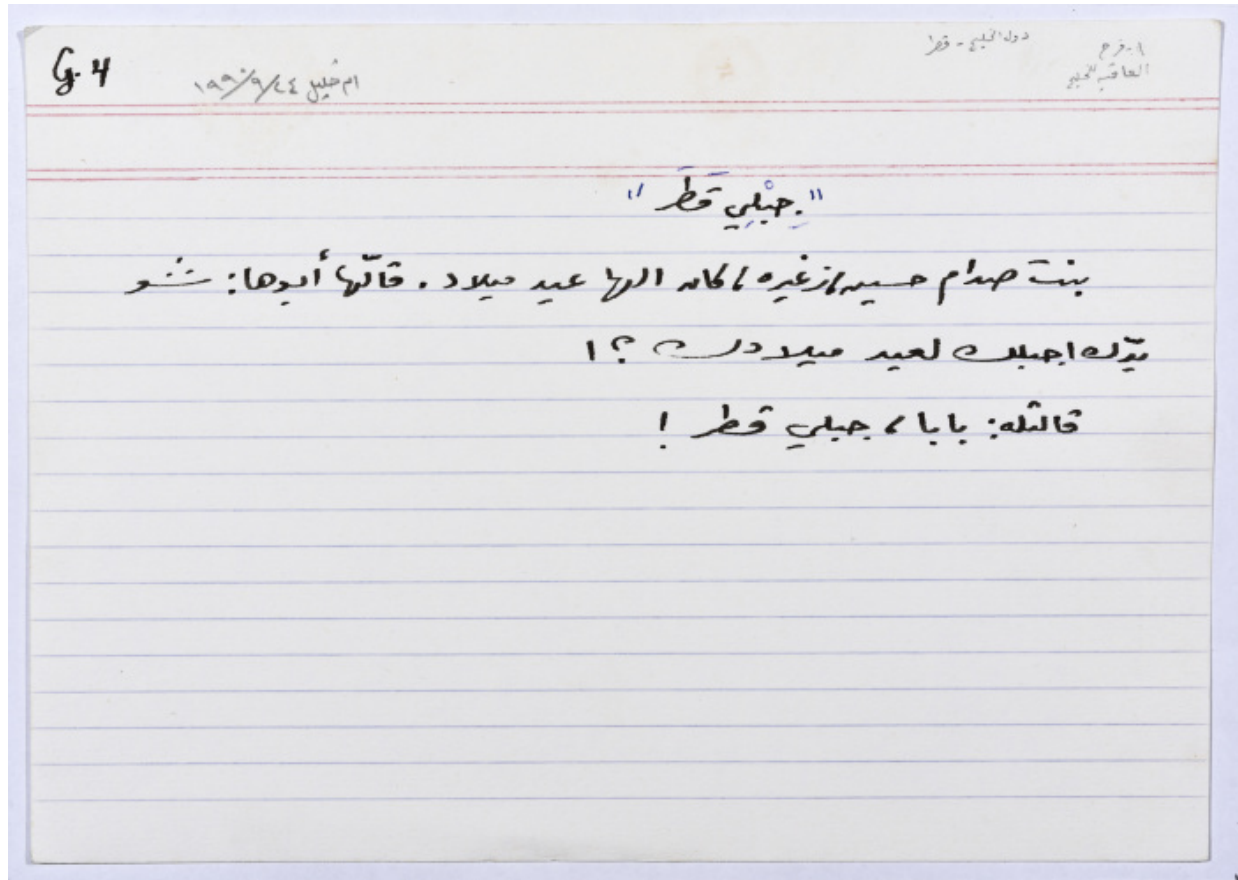 G. 4
ام خليل ١٩٩٠/٩/٢٤
دول الخليج - قطر
٨-فرح
"جِبْلِي قَطَر"
بنت صدام حسين، زغيره، كان الها عيد ميلاد. قالّها أبوها: شو
بدّك اجبلك لعيد ميلادك؟!
قالتله: بابا، جبلي قطر!